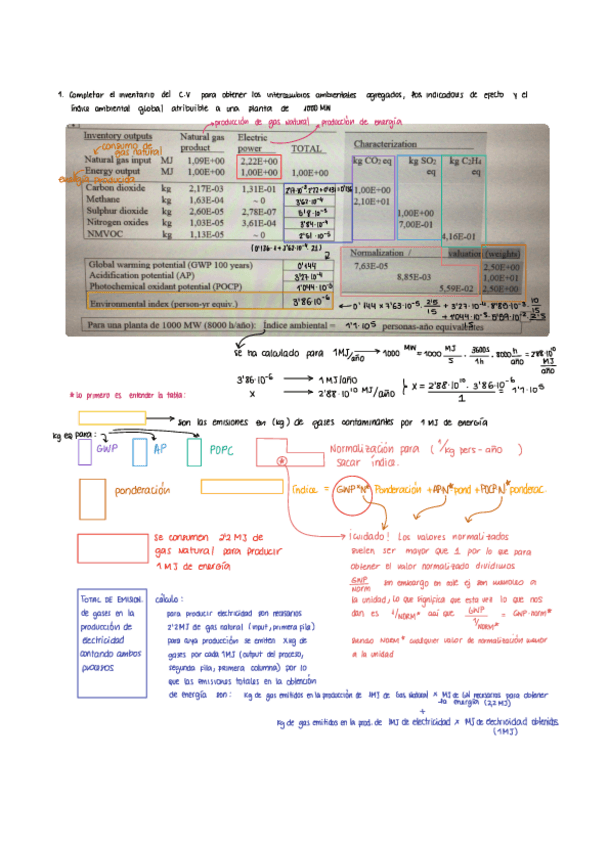 1. Completar el inventario del C.V para obtener los intercambios ambientales agregados, los indicadores de efecto y el
índice ambiental global atribuible a una planta de 1000 MW
producción de gas natural
producción de energía
Inventory outputs Natural gas product Electric power TOTAL Characterization
consumo de gas natural
Natural gas input MJ 1,09E+00 2,22E+00 kg CO2 eq kg SO2 eq kg C2H4 eq
Energy output MJ 1,00E+00 1,00E+00 1,00E+00
energía producida
Carbon dioxide kg 2,17E-03 1,31E-01 1,00E+00
Methane kg 1,63E-04 ~ 0 3'62·10⁻⁴ 2,10E+01
Sulphur dioxide kg 2,60E-05 2,78E-07 5'8·10⁻⁵ 1,00E+00
Nitrogen oxides kg 1,03E-05 3,61E-04 3'84·10⁻⁴ 7,00E-01
NMVOC kg 1,13E-05 ~ 0 2'51·10⁻⁵ 4,16E-01
(0'136·1+3'62·10⁻⁴·21)
Normalization / valuation (weights)
Global warming potential (GWP 100 years) 0'144 7,63E-05 2,50E+00
Acidification potential (AP) 3'27·10⁻⁴ 8,85E-03 1,00E+01
Photochemical oxidant potential (POCP) 1'044·10⁻⁵ 5,59E-02 2,50E+00
Environmental index (person-yr equiv.) 3'86·10⁻⁶
Para una planta de 1000 MW (8000 h/año): Índice ambiental = 1'1·10⁵ personas-año equivalentes
se ha calculado para 1MJ/año → 1000 MW = 1000 MJ/s · 3600s/1h · 8000h/año = 2'88·10¹⁰ MJ/año
3'86·10⁻⁶ → 1 MJ/año
x → 2'88·10¹⁰ MJ/año } x = 2'88·10¹⁰ · 3'86·10⁻⁶ / 1 1'1·10⁵
* lo primero es entender la tabla:
→ son las emisiones en (kg) de gases contaminantes por 1 MJ de energía
kg eq para:
GWP AP POPC Normalización para (1/kg pers-año)
sacar índice.
ponderación índice = GWP*N* Ponderación + AP N* pond + POCP N* ponderac.
se consumen 2'2 MJ de
gas natural para producir
1 MJ de energía
¡cuidado! Los valores normalitzados
suelen ser mayor que 1 por lo que para
obtener el valor normalitzado dividimos
GWP/NORM sin embargo en este ej son a
la unidad, lo que significa que esta vez lo que nos
dan es 1/NORM* así que GWP / 1/NORM* = GWP·NORM*
siendo NORM* cualquier valor de normalización mayor
a la unidad
TOTAL DE EMISION.
de gases en la
producción de
electricidad
contando ambos
procesos
cálculo:
para producir electricidad son necesarios
2'2MJ de gas natural (input, primera fila)
para cuya producción se emiten x kg de
gases por cada 1MJ (output del proceso,
segunda fila, primera columna) por lo
que las emisiones totales en la obtención
de energía son: kg de gas emitidos en la producción de 1MJ de Gas Natural × MJ de GN necesarios para obtener
la energía (2,2 MJ)
+
kg de gas emitidos en la prod. de 1MJ de electricidad × MJ de electricidad obtenidos
(1MJ)